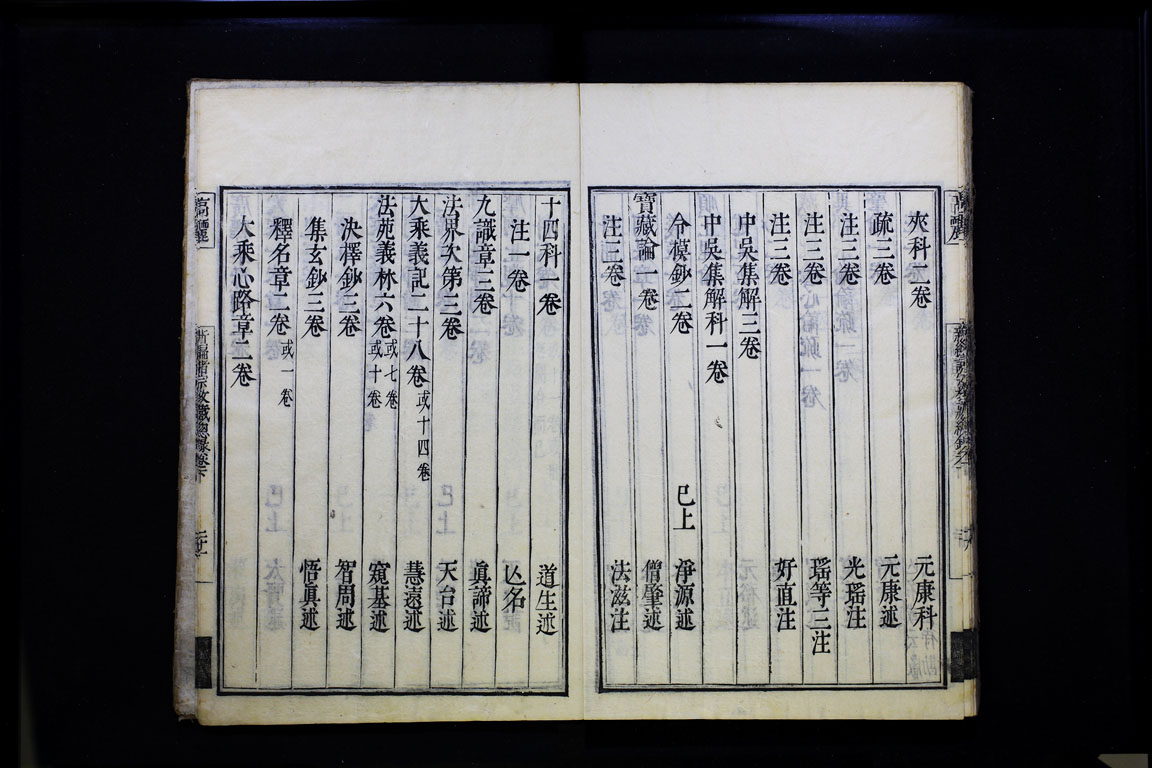 夾科二卷 元康科
疏三卷 元康述
注三卷 光瑶注
注三卷 瑶等三注
注三卷 好直注
中吳集解三卷
中吳集解科一卷
令模鈔二卷 已上 淨源述
寶藏論一卷 僧肇述
注三卷 法滋注
十四科一卷 道生述
注一卷 亾名
九識章三卷 眞諦述
法界次第三卷 天台述
大乘義記二十八卷 或十四卷 慧遠述
法苑義林六卷 或七卷 或十卷 窺基述
決擇鈔三卷 智周述
集玄鈔三卷 悟眞述
釋名章二卷 或一卷
大乘心路章二卷
高麗
新編諸宗教藏總錄卷下